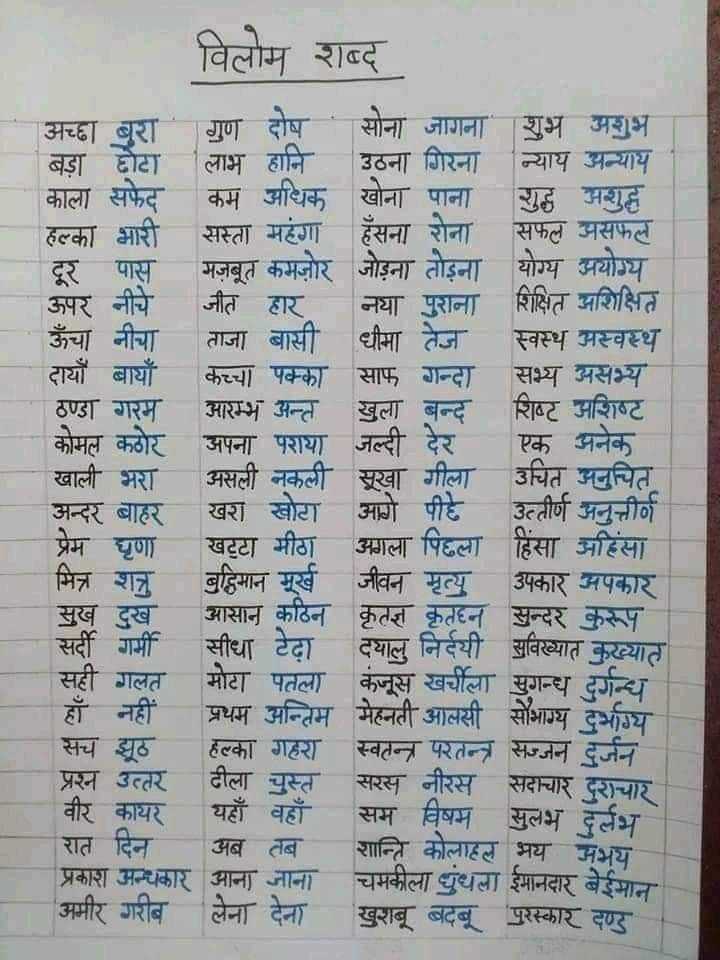 विलोम शब्द
अच्छा बुरा गुण दोष सोना जागना शुभ अशुभ
बड़ा छोटा लाभ हानि उठना गिरना न्याय अन्याय
काला सफेद कम अधिक खोना पाना शुद्ध अशुद्ध
हल्का भारी सस्ता महंगा हँसना रोना सफल असफल
दूर पास मज़बूत कमज़ोर जोड़ना तोड़ना योग्य अयोग्य
ऊपर नीचे जीत हार नया पुराना शिक्षित अशिक्षित
ऊँचा नीचा ताजा बासी धीमा तेज स्वस्थ अस्वस्थ
दायाँ बायाँ कच्चा पक्का साफ गन्दा सभ्य असभ्य
ठण्डा गरम आरम्भ अन्त खुला बन्द शिष्ट अशिष्ट
कोमल कठोर अपना पराया जल्दी देर एक अनेक
खाली भरा असली नकली सूखा गीला उचित अनुचित
अन्दर बाहर खरा खोटा आगे पीछे उत्तीर्ण अनुत्तीर्ण
प्रेम घृणा खट्टा मीठा अगला पिछला हिंसा अहिंसा
मित्र शत्रु बुद्धिमान मूर्ख जीवन मृत्यु उपकार अपकार
सुख दुख आसान कठिन कृतज्ञ कृतघ्न सुन्दर कुरूप
सर्दी गर्मी सीधा टेढ़ा दयालु निर्दयी सुविख्यात कुख्यात
सही गलत मोटा पतला कंजूस खर्चीला सुगन्ध दुर्गन्ध
हाँ नहीं प्रथम अन्तिम मेहनती आलसी सौभाग्य दुर्भाग्य
सच झूठ हल्का गहरा स्वतन्त्र परतन्त्र सज्जन दुर्जन
प्रश्न उत्तर ढीला चुस्त सरस नीरस सदाचार दुराचार
वीर कायर यहाँ वहाँ सम विषम सुलभ दुर्लभ
रात दिन अब तब शान्ति कोलाहल भय अभय
प्रकाश अन्धकार आना जाना चमकीला धुंधला ईमानदार बेईमान
अमीर गरीब लेना देना खुशबू बदबू पुरस्कार दण्ड